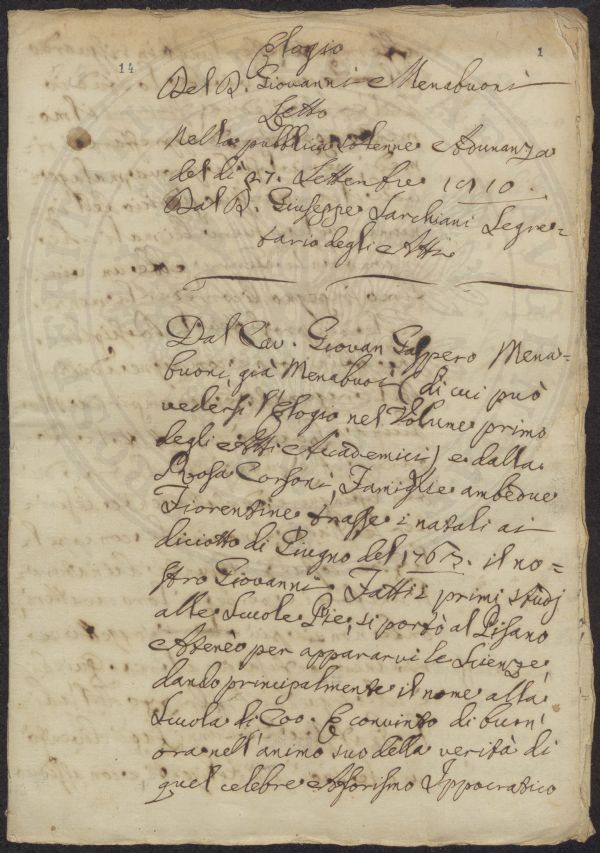 14
1
Elogio
Del D. Giovanni Menabuoni
Letto
Nella pubblica Solenne Adunanza
del dì 27. Settembre 1810.
Dal D. Giuseppe Sarchiani Segre=
tario degli Atti
Dal Cav. Giovan Gaspero Mena=
buoni, già Menabuoi (di cui può
vedersi l'Elogio nel Volume primo
degli Atti Accademici) e dalla
Rosa Corsoni, Famiglie ambedue
Fiorentine trasse i natali ai
diciotto di Giugno del il no=
stro Giovanni. Fatti i primi studj
alle Scuole Pie, si portò al Pisano
Ateneo per appararvi le Scienze,
dando principalmente il nome alla
Scuola di Coo. E convinto di buon'
ora nell'animo suo della verità di
quel celebre Aforismo Ippocratico